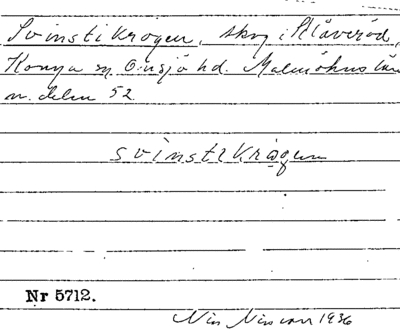 Svinstikrogen, skog i Klåveröd,
Konga sn Onsjö hd. Malmöhus län
n. delen 52
svinstikrågen
Nr 5712.
Nils Nilsson 1936